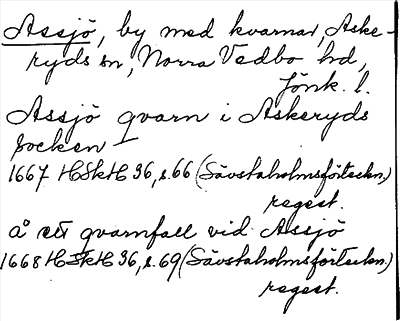 Assjö, by med kvarnar, Aske-
ryds sn, Norra Vedbo hd,
Jönk. l.
Assjö qvarn i Askeryds
socken —
1667 HSkH 36, s. 66 (Sävstaholmsförteckn.)
regest.
å ett qvarnfall vid Assjö
1668 HSkH 36, s. 69 (Sävstaholmsförteckn.)
regest.